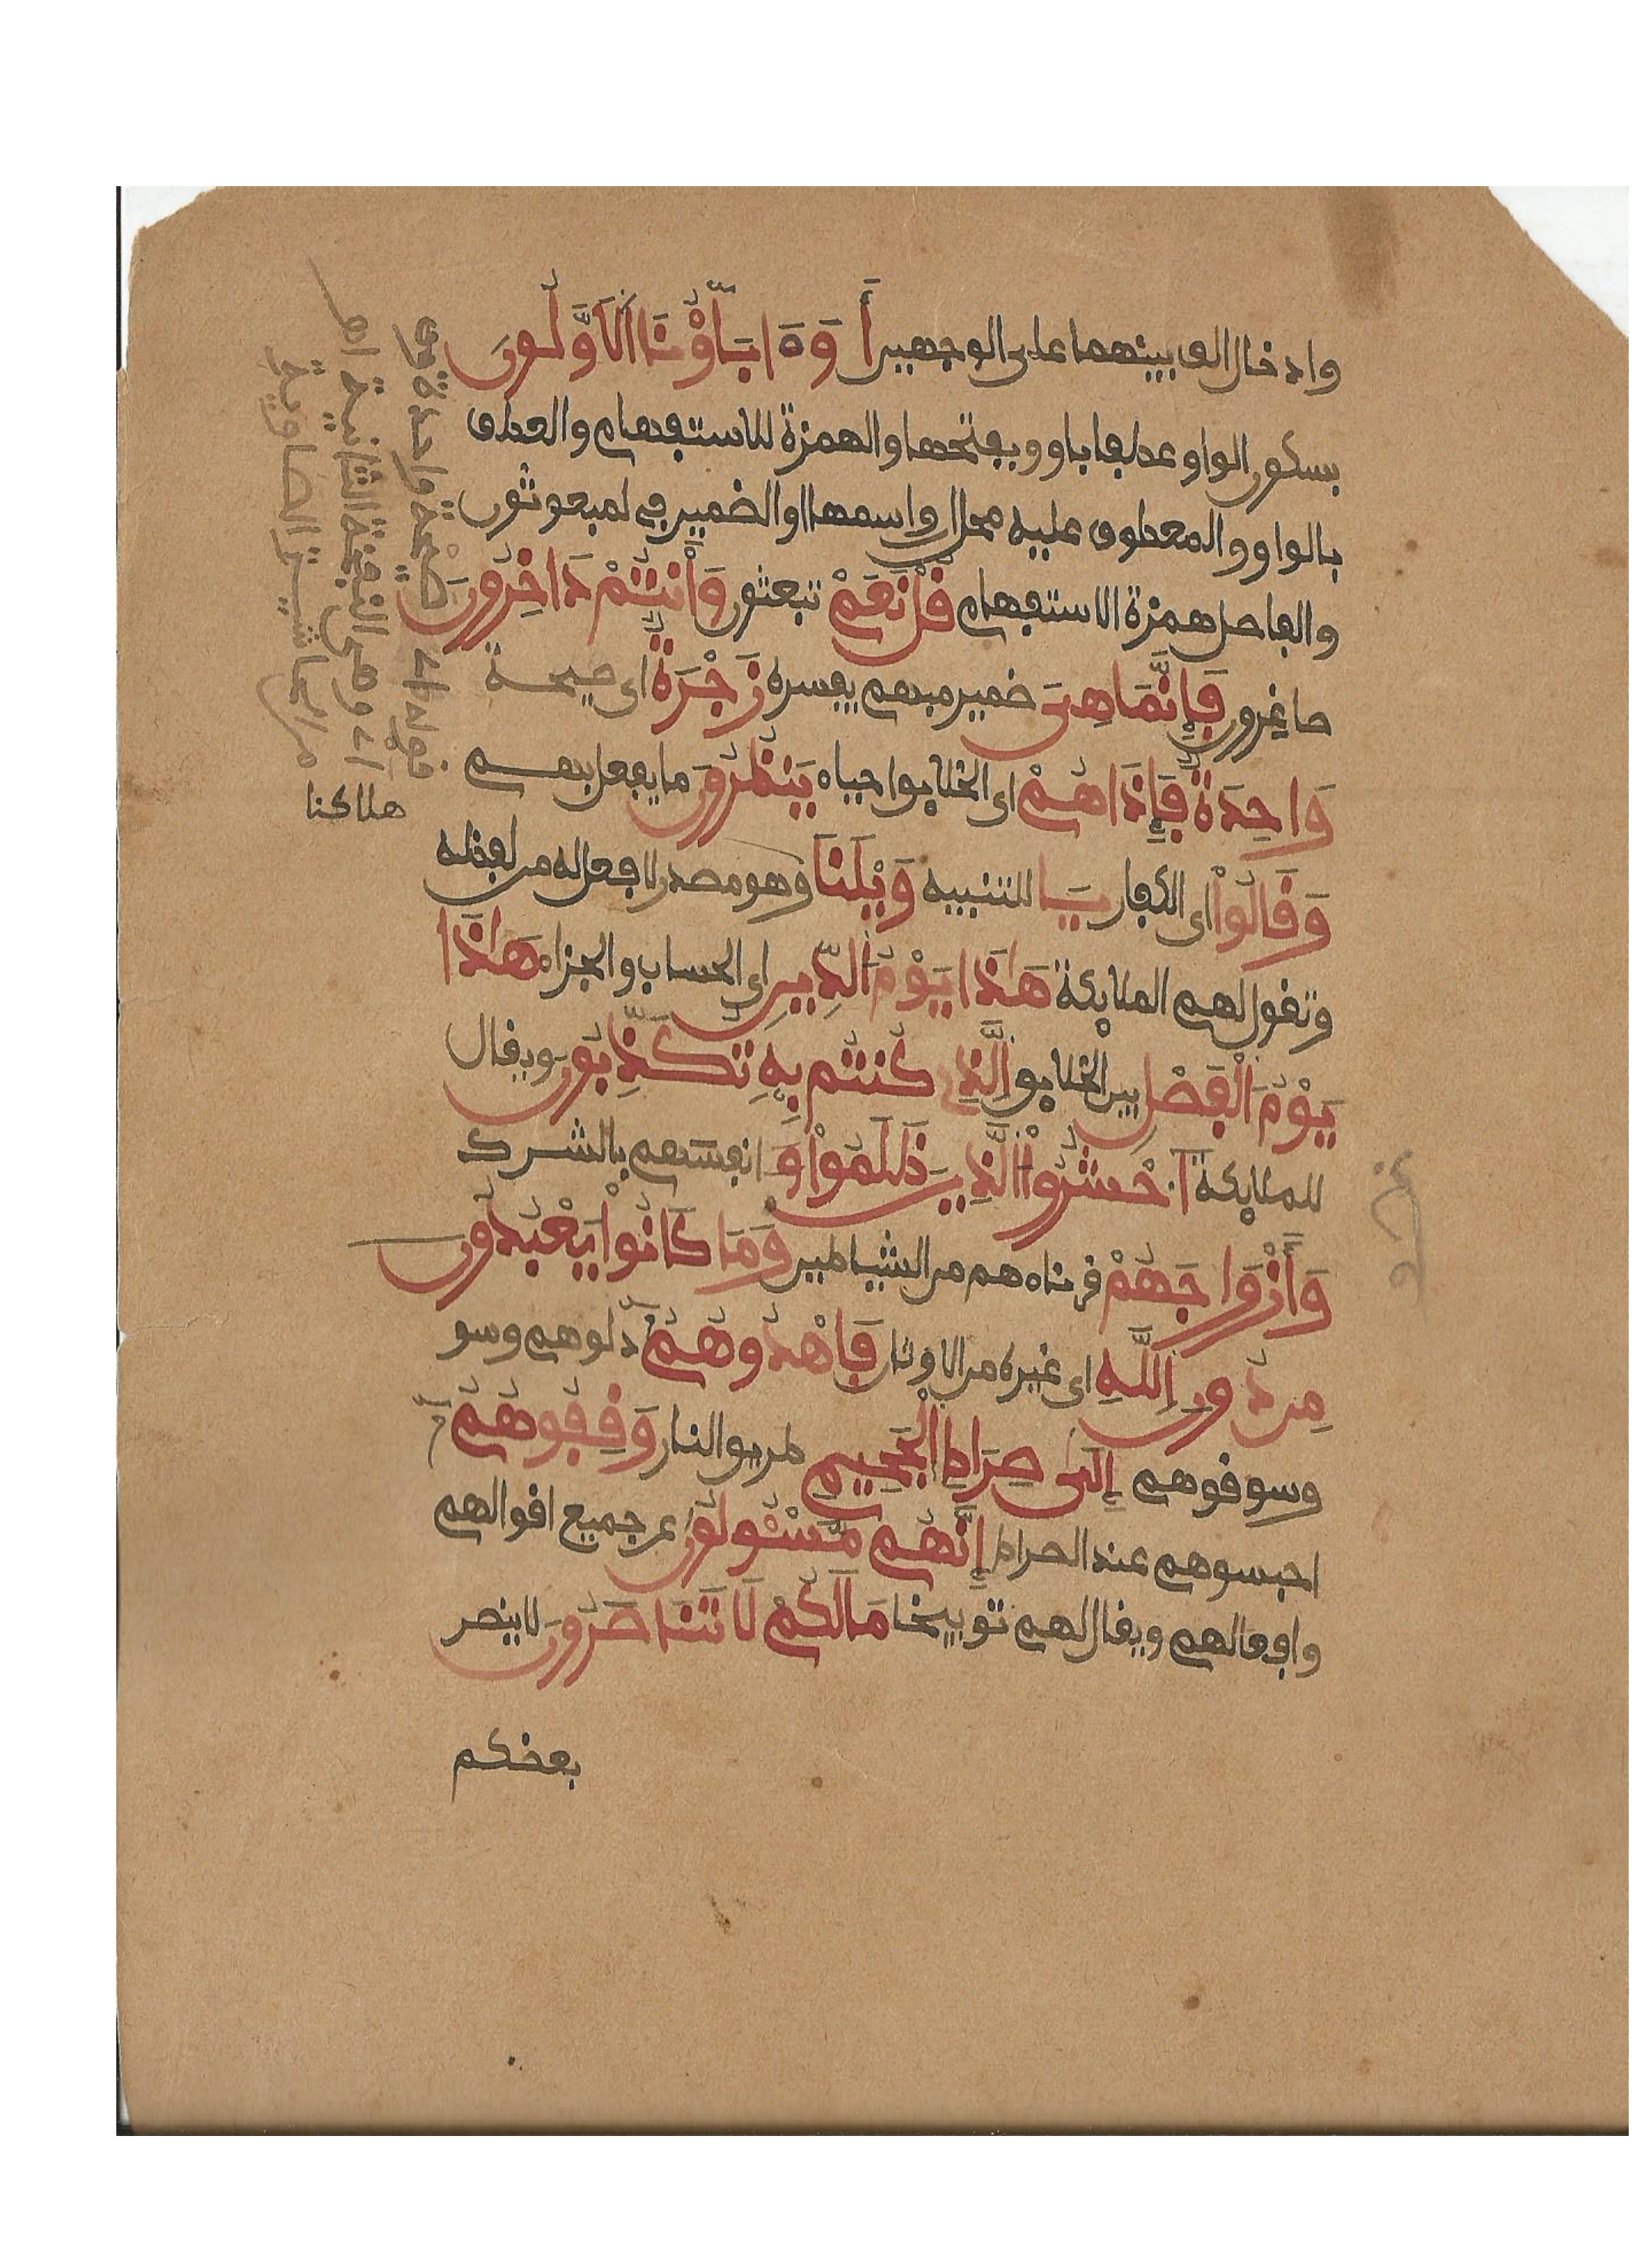 وادخال الف بينهما على الوجهين أَوَءَابَآؤُنَا اَلَاوَّلُونَ
بسكون الواو عطفا باو وبفتحها والهمزة للاستفهام والعطف
بالواو والمعطوف عليه محل ان واسمها او الضمير في لمبعوثون
والفاصل همزة الاستفهام قُلْ نَعَمْ تبعثون وَأَنتُمْ دَاخِرُونَ
صاغرون فَإِنَّمَا هِىَ ضمير مبهم يفسره زَجْرَةٌ اى صيحة
وَاحِدَةٌ فَإِذَا هُمْ اى الخلايق احياء يَنظُرُونَ ما يفعل بهم
وَقَالُواْ اى الكفار يَا للتنبيه وَيْلَنَا وهو مصدر لا فعل له من لفظه
وتقول لهم الملايكة هَٰذَا يَوْمُ اُلدِّينِ اى الحساب والجزاء هَٰذَا
يَوْمُ اُلْفَصْلِ بين الخلايق اِلَّذِى كُنتُم بِهِ تُكَذِّبُونَ ويقال
للملايكة اَحْشُرُواْ اُلَّذِينَ ظَلَمُواْ انفسهم بالشرك
وَأَزْوَاجَهُمْ قرناءهم من الشياطين وَمَا كَانُواْ يَعْبُدُونَ
مِن دُونِ اِللَّهِ اى غيره من الاوثان فَاهْدُوهُمُ دلوهم وسو
وسوقوهم إِلَىٰ صِرَاطِ اِلْجَحِيمِ طريق النار وَقِفُوهُمُ
احبسوهم عند الصراط إِنَّهُم مَّسْـُٔولُونَ عن جميع اقوالهم
وافعالهم ويقال لهم توبيخا مَا لَكُمْ لَا تَنَاصَرُونَ لا ينصر
بعضكم
قوله اى صيحة واحدة
اى وهى النفخة الثانية اهـ
من حاشية الصاوية
هاكنا